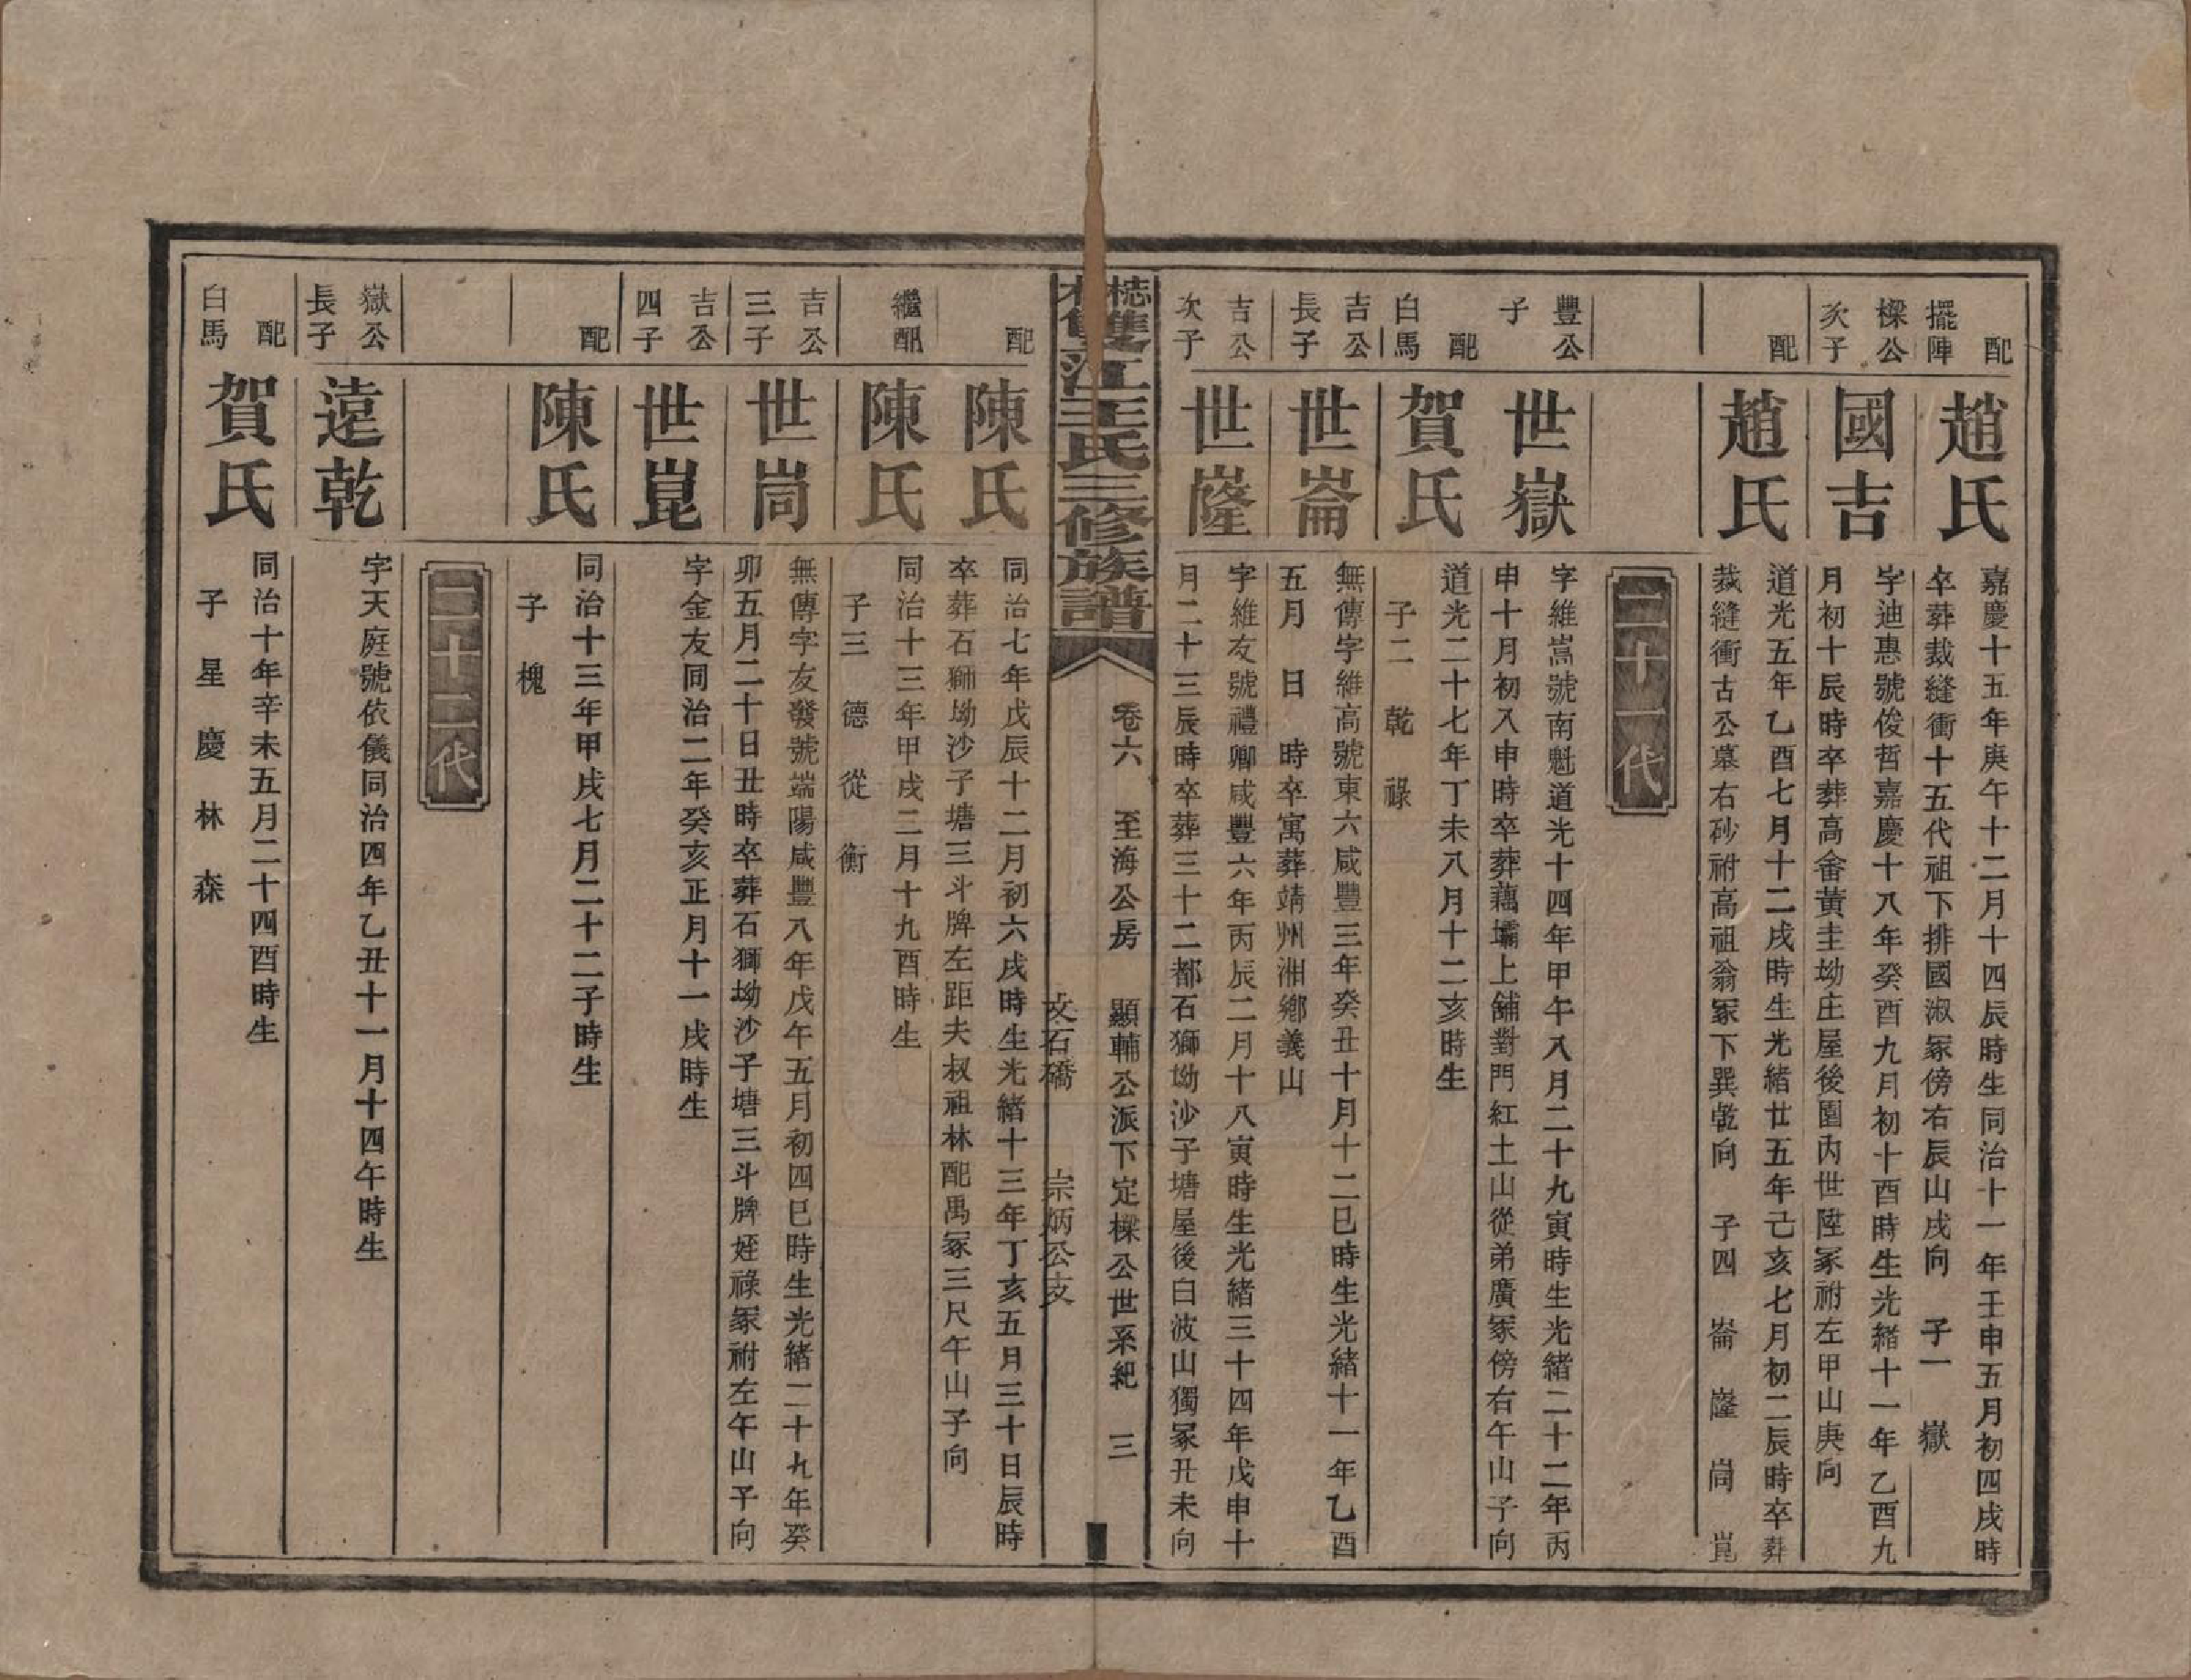 配
擺陣
趙氏
嘉慶十五年庚午十二月十四辰時生同治十一年壬申五月初四戌時
卒葬裁縫衝十五代祖下排國淑冢傍右辰山戌向 子一 嶽
樑公
次子
國吉
字迪惠號俊哲嘉慶十八年癸酉九月初十酉時生光緒十一年乙酉九
月初十辰時卒葬高畬黃圭坳庄屋後園內世陞冢祔左甲山庚向
配
趙氏
道光五年乙酉七月十二戌時生光緒廿五年己亥七月初二辰時卒葬
裁縫衝古公墓右砂祔高祖翁冢下巽乾向 子四 崙 隆 峝 崑
二十一代
豐公
子
世嶽
字維嵩號南魁道光十四年甲午八月二十九寅時生光緒二十二年丙
申十月初入申時卒葬藕壩上舖對門紅土山從弟廣冢傍右午山子向
配
白馬
賀氏
道光二十七年丁未八月十二亥時生
子二 乾 祿
吉公
長子
世崙
無傳字維高號東六咸豐三年癸丑十月十二巳時生光緒十一年乙酉
五月 日 時卒寓葬靖州湘鄉義山
吉公
次子
世隆
字維友號禮卿咸豐六年丙辰二月十八寅時生光緒三十四年戊申十
月二十三辰時卒葬三十二都石獅坳沙子塘屋後白波山獨冢丑未向
梽木
雙江王氏三修族譜
卷六 至海公房 顯輔公派下定樑公世系紀 三
文石礄 宗炳公支
配
陳氏
同治七年戊辰十二月初六戌時生光緒十三年丁亥五月三十日辰時
卒葬石獅坳沙子塘三斗牌左距夫叔祖林配禹冢三尺午山子向
繼配
陳氏
同治十三年甲戌二月十九酉時生
子三 德 從 衡
吉公
三子
世峝
無傳字友發號端陽咸豐八年戊午五月初四巳時生光緒二十九年癸
卯五月二十日丑時卒葬石獅坳沙子塘三斗牌姪祿冢祔左午山子向
吉公
四子
世崑
字金友同治二年癸亥正月十一戌時生
配
陳氏
同治十三年甲戌七月二十二子時生
子 槐
二十二代
嶽公
長子
遠乾
字天庭號依儀同治四年乙丑十一月十四午時生
配
白馬
賀氏
同治十年辛未五月二十四酉時生
子 星 慶 林 森